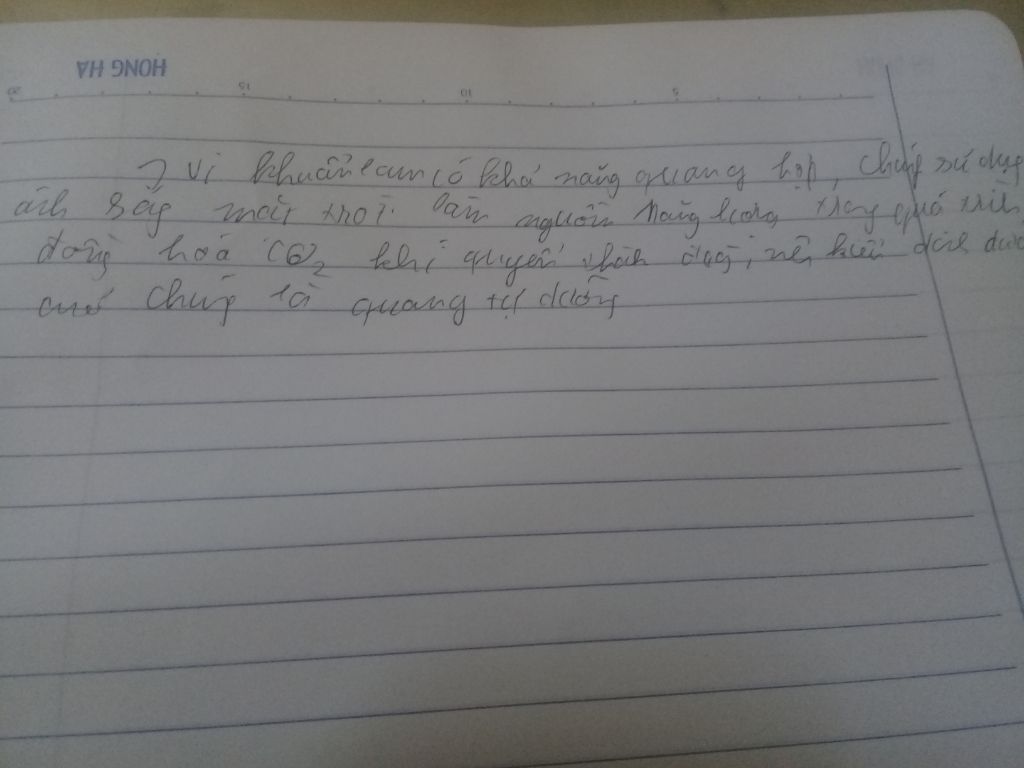 HONG HA
20 15 10 5
Vi khuẩn lam có khả năng quang hợp, chúng sử dụng
ánh sáng mặt trời làm nguồn năng lượng trong quá trình
đồng hoá CO2 khí quyển thành đường, nên kiểu dinh dưỡng
của chúng là quang tự dưỡng